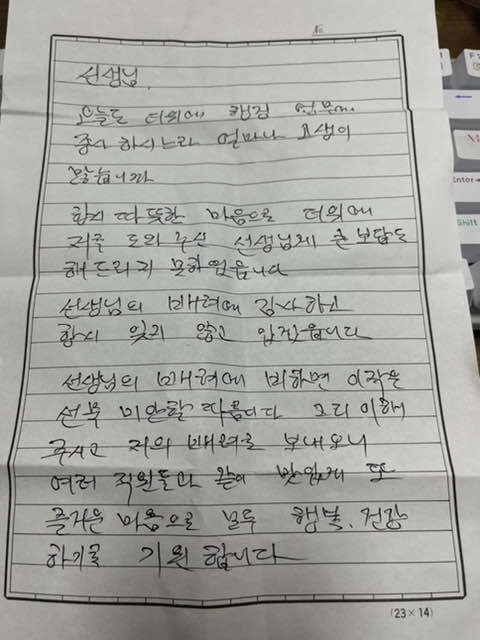 No
선생님.
오늘도 더위에 행정 업무에
종사 하시는라 얼마나 고생이
많습니까
항시 따뜻한 마음으로 더위에
저를 도와 주신 선생님께 큰 보답도
해드리지 못하였읍니다
선생님의 배려에 감사하고
항시 잊지 않고 있겠읍니다
선생님의 배려에 비하면 이 작은
선물 미안할 따름이다 그리 이해
주시고 저의 배려를 보내오니
여러 직원들과 같이 맛있게 또
즐거운 마음으로 모두 행복, 건강
하기를 기원 합니다
(23×14)
Enter
Shift